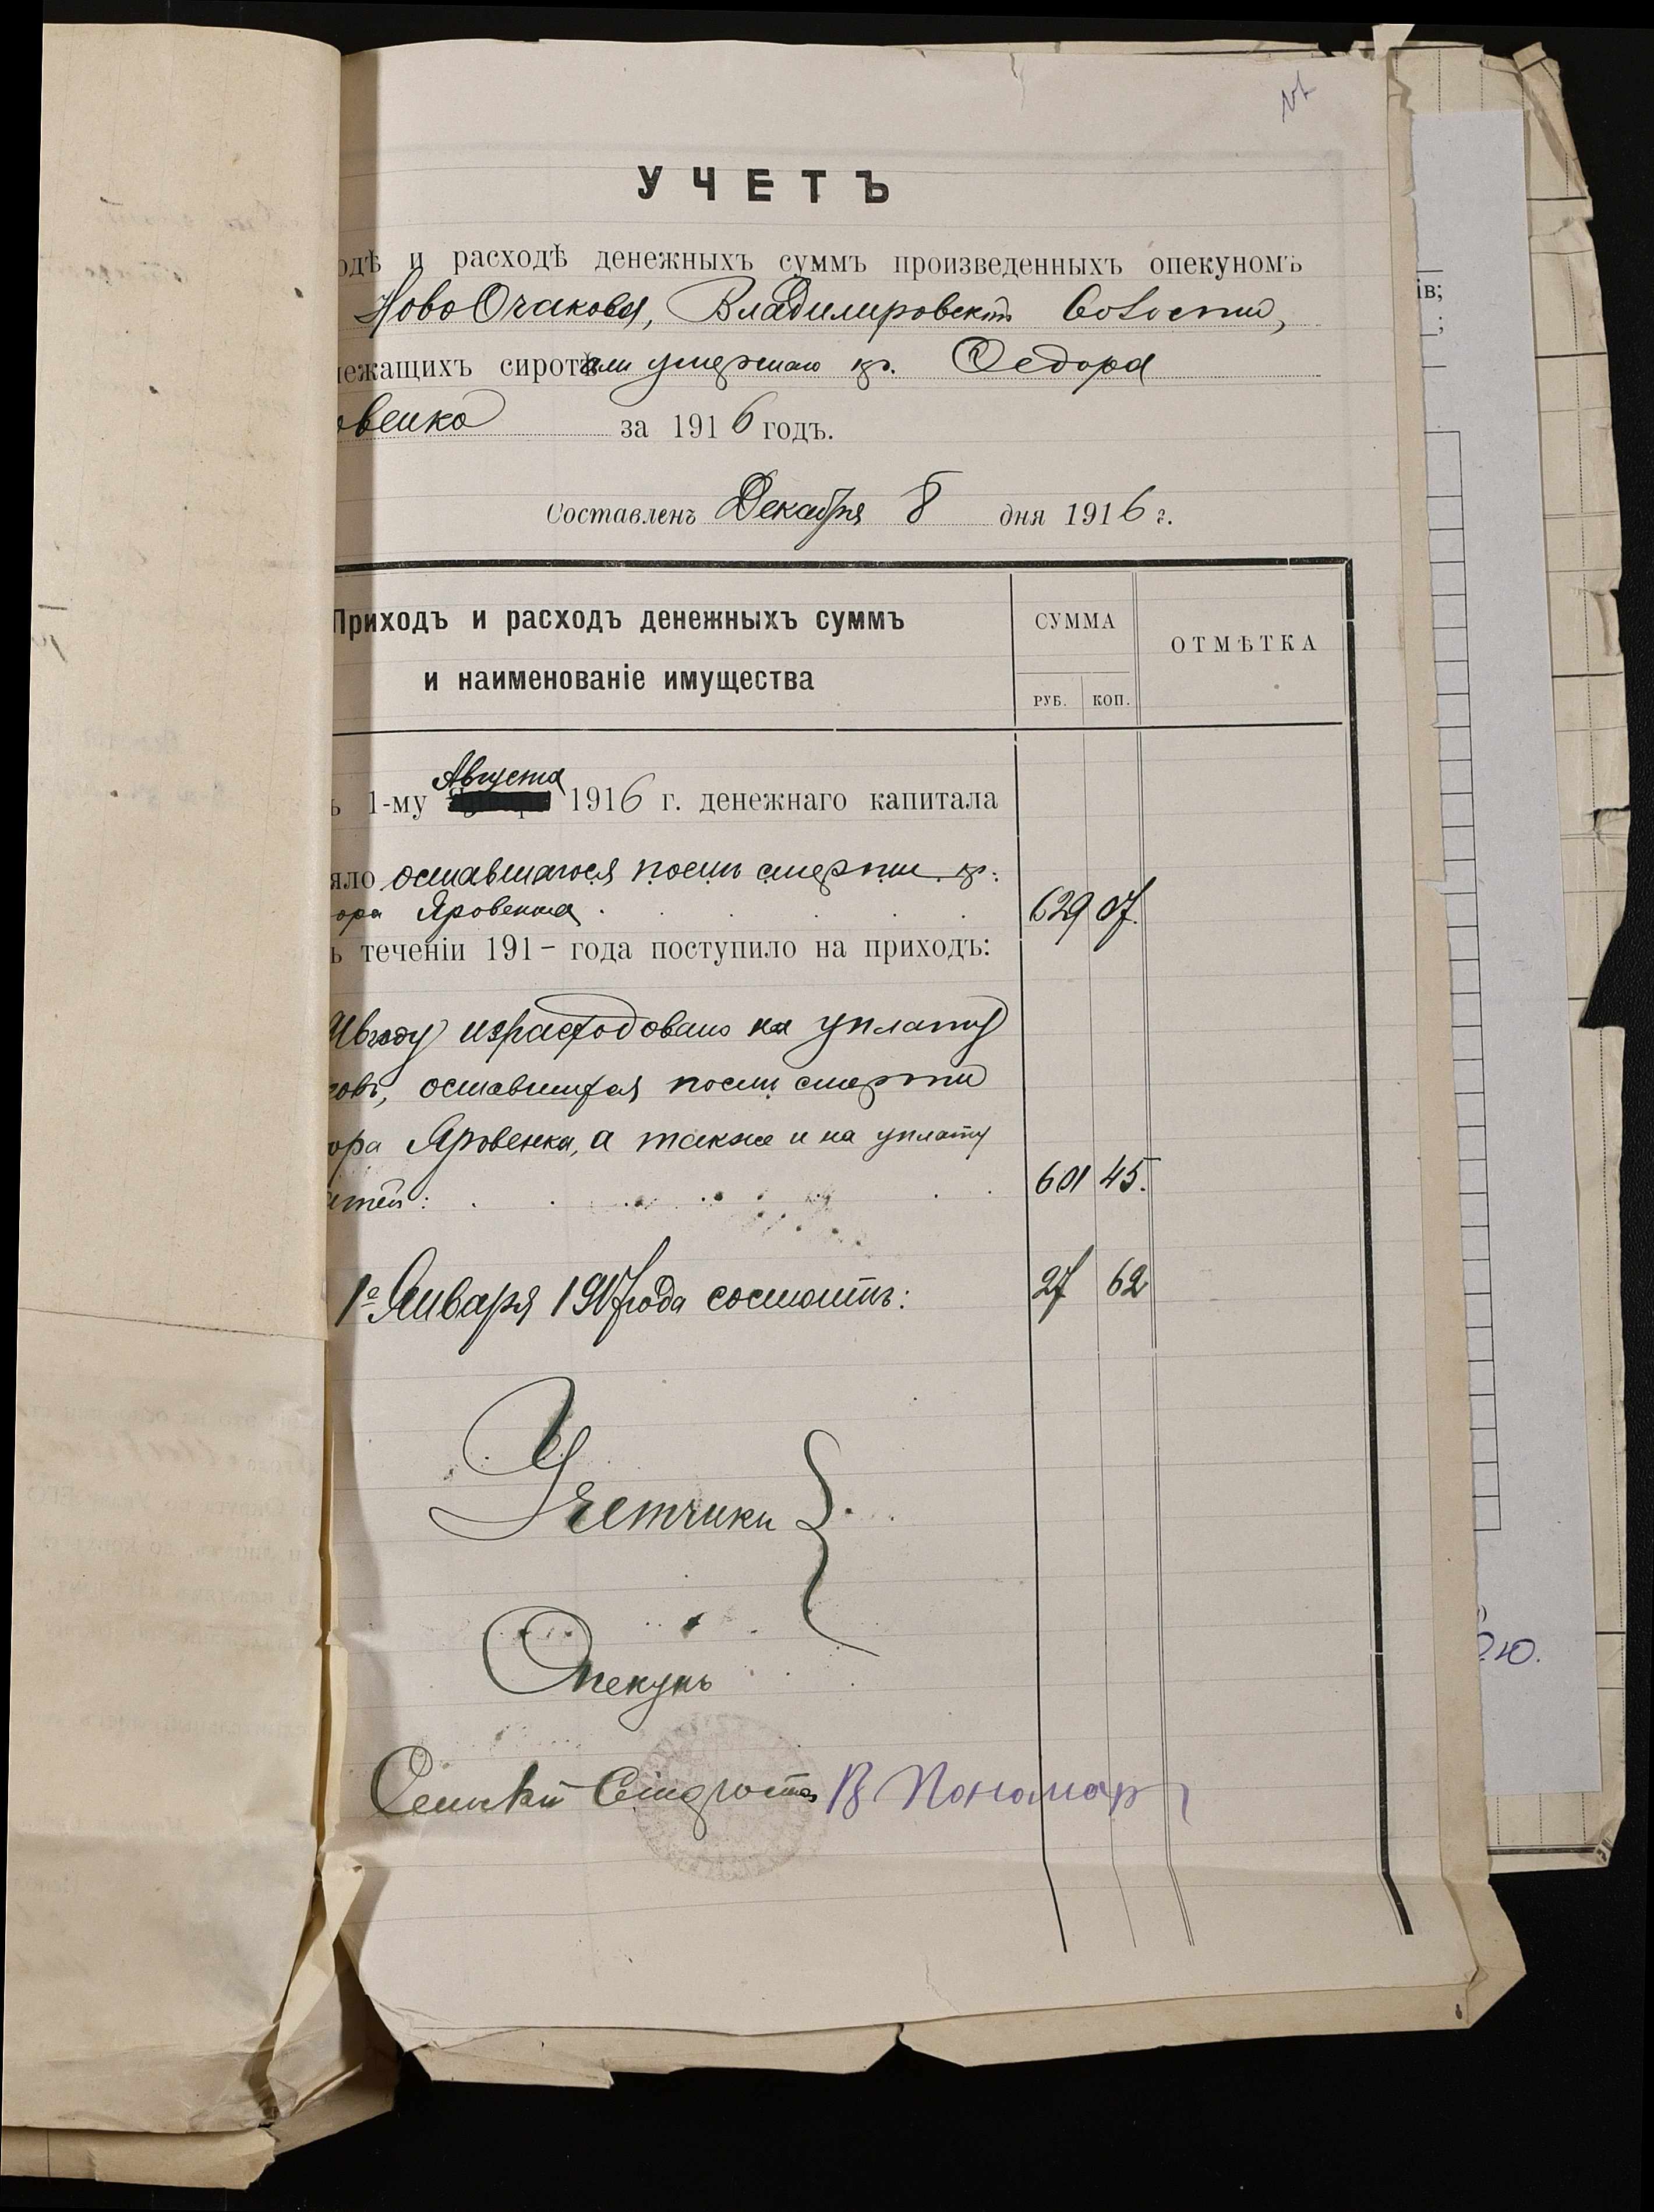 УЧЕТЪ
одѣ и расходѣ денежныхъ суммъ произведенныхъ опекуномъ
НовоОчакова, Владимировской волости,
лежащихъ сиротами умершаго кр. Федора
овенко за 1916 годъ.
Составленъ Декабря 8 дня 1916 г.
Приходъ и расходъ денежныхъ суммъ
и наименованіе имущества
СУММА
РУБ. КОП.
ОТМѢТКА
Августа
ъ 1-му 1916 г. денежнаго капитала
яло оставшагося послѣ смерти кр.
ора Яровенка 629 07.
ъ теченіи 191- года поступило на приходъ:
году израсходовано на уплату
говъ, оставшихся послѣ смерти
ора Яровенка, а также и на уплату
атей: 601 45.
1е Января 1917 года состоитъ: 27 62
Учетчики
Опекунъ
Сельскій Староста В Пономар
ів;
;